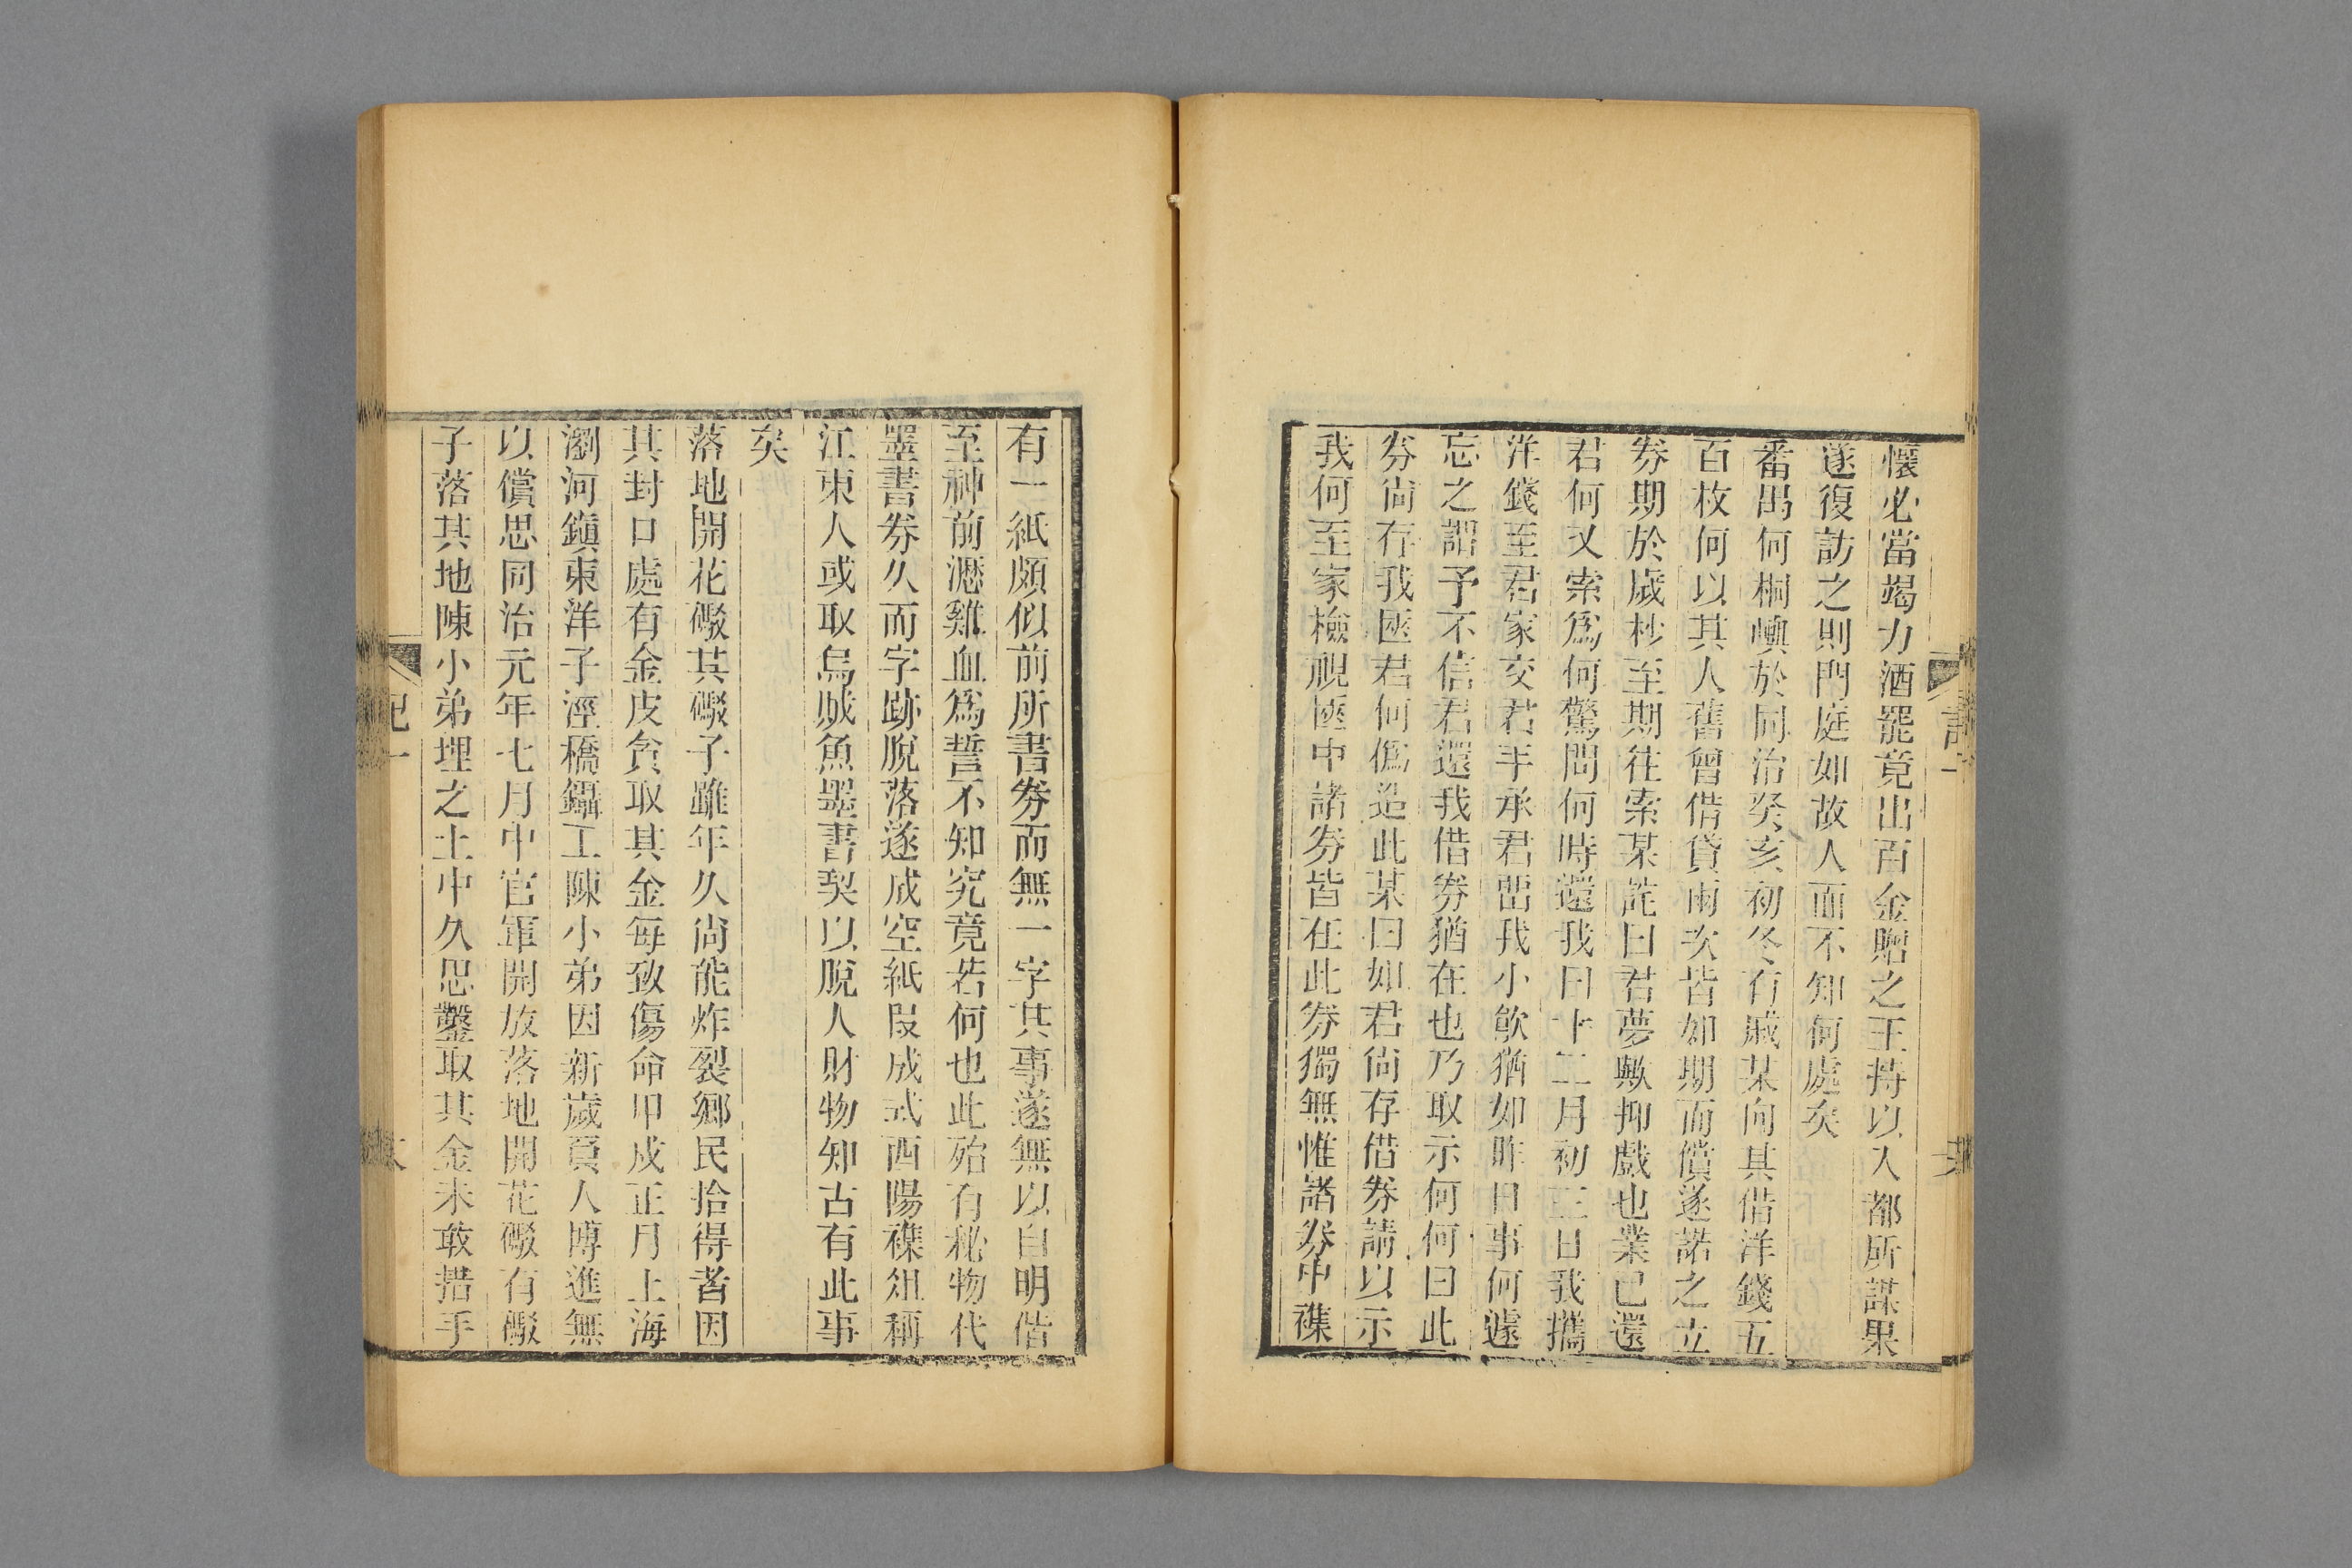 懷必當竭力酒罷竟出百金贈之王持以入都所謀果
遂復訪之則門庭如故人面不知何處矣
番禺何桐嶼於同治癸亥初冬有戚某向其借洋錢五
百枚何以其人舊曾借貸兩次皆如期而償遂諾之立
券期於歲杪至期往索某詫曰君夢歟抑戲也業已還
君何又索爲何驚問何時還我曰十二月初三日我攜
洋錢至君家交君手承君畱我小飮猶如昨日事何遽
忘之謂予不信君還我借券猶在也乃取示何何曰此
券尙存我匧君何僞造此某曰如君尙存借券請以示
我何至家檢視匧中諸券皆在此券獨無惟諸券中襍
有一紙頗似前所書券而無一字其事遂無以自明偕
至神前瀝雞血爲誓不知究竟若何也此殆有秘物代
墨書券久而字跡脫落遂成空紙段成式酉陽襍俎稱
江東人或取烏賊魚墨書契以脫人財物知古有此事
矣
落地開花礮其礮子雖年久尙能炸裂鄉民拾得者因
其封口處有金皮貪取其金每致傷命甲戍正月上海
瀏河鎭東洋子涇橋鑷工陳小弟因新歲負人博進無
以償思同治元年七月中官軍開放落地開花礮有礮
子落其地陳小弟埋之土中久思鑿取其金未敢措手